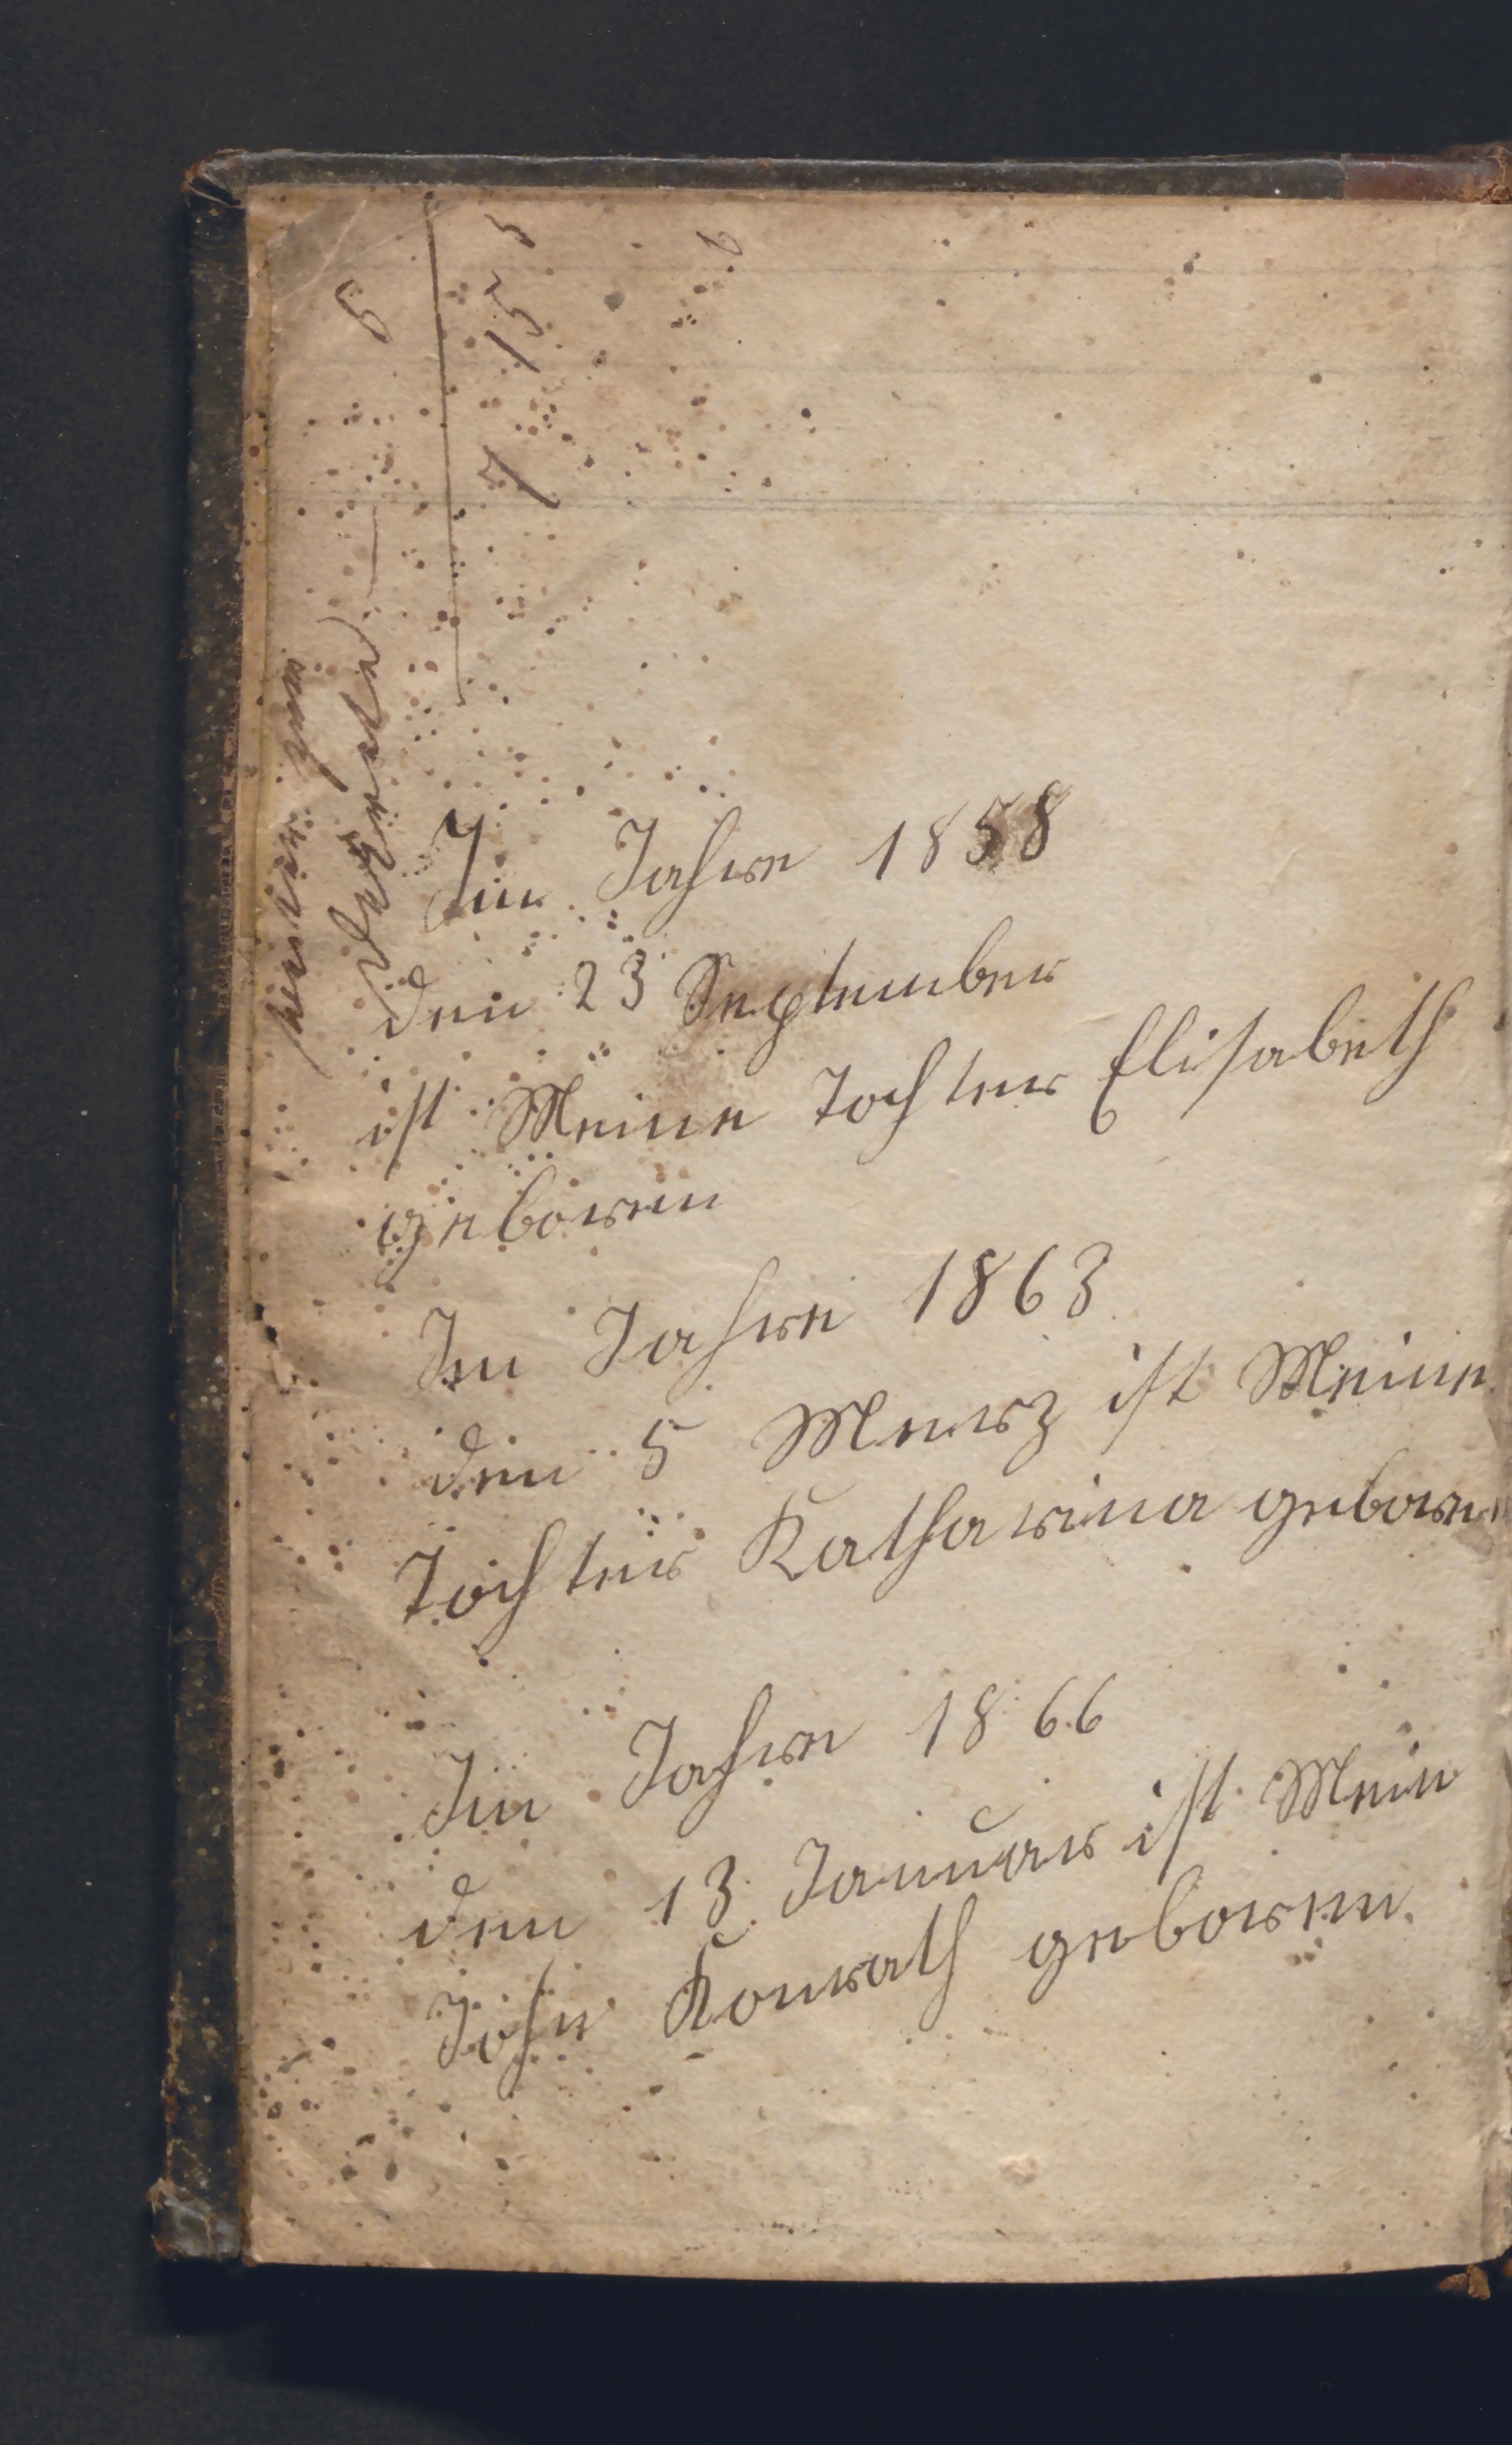 Im Jahre 1858
den 23 September
ist Meine Tochter Elisabeth
geboren
Im Jahre 1863
den 5 Merz ist Meine
Tochter Katharina geboren
Im Jahre 1866
den 13 Januar ist Mein
Sohn Konrath geboren.